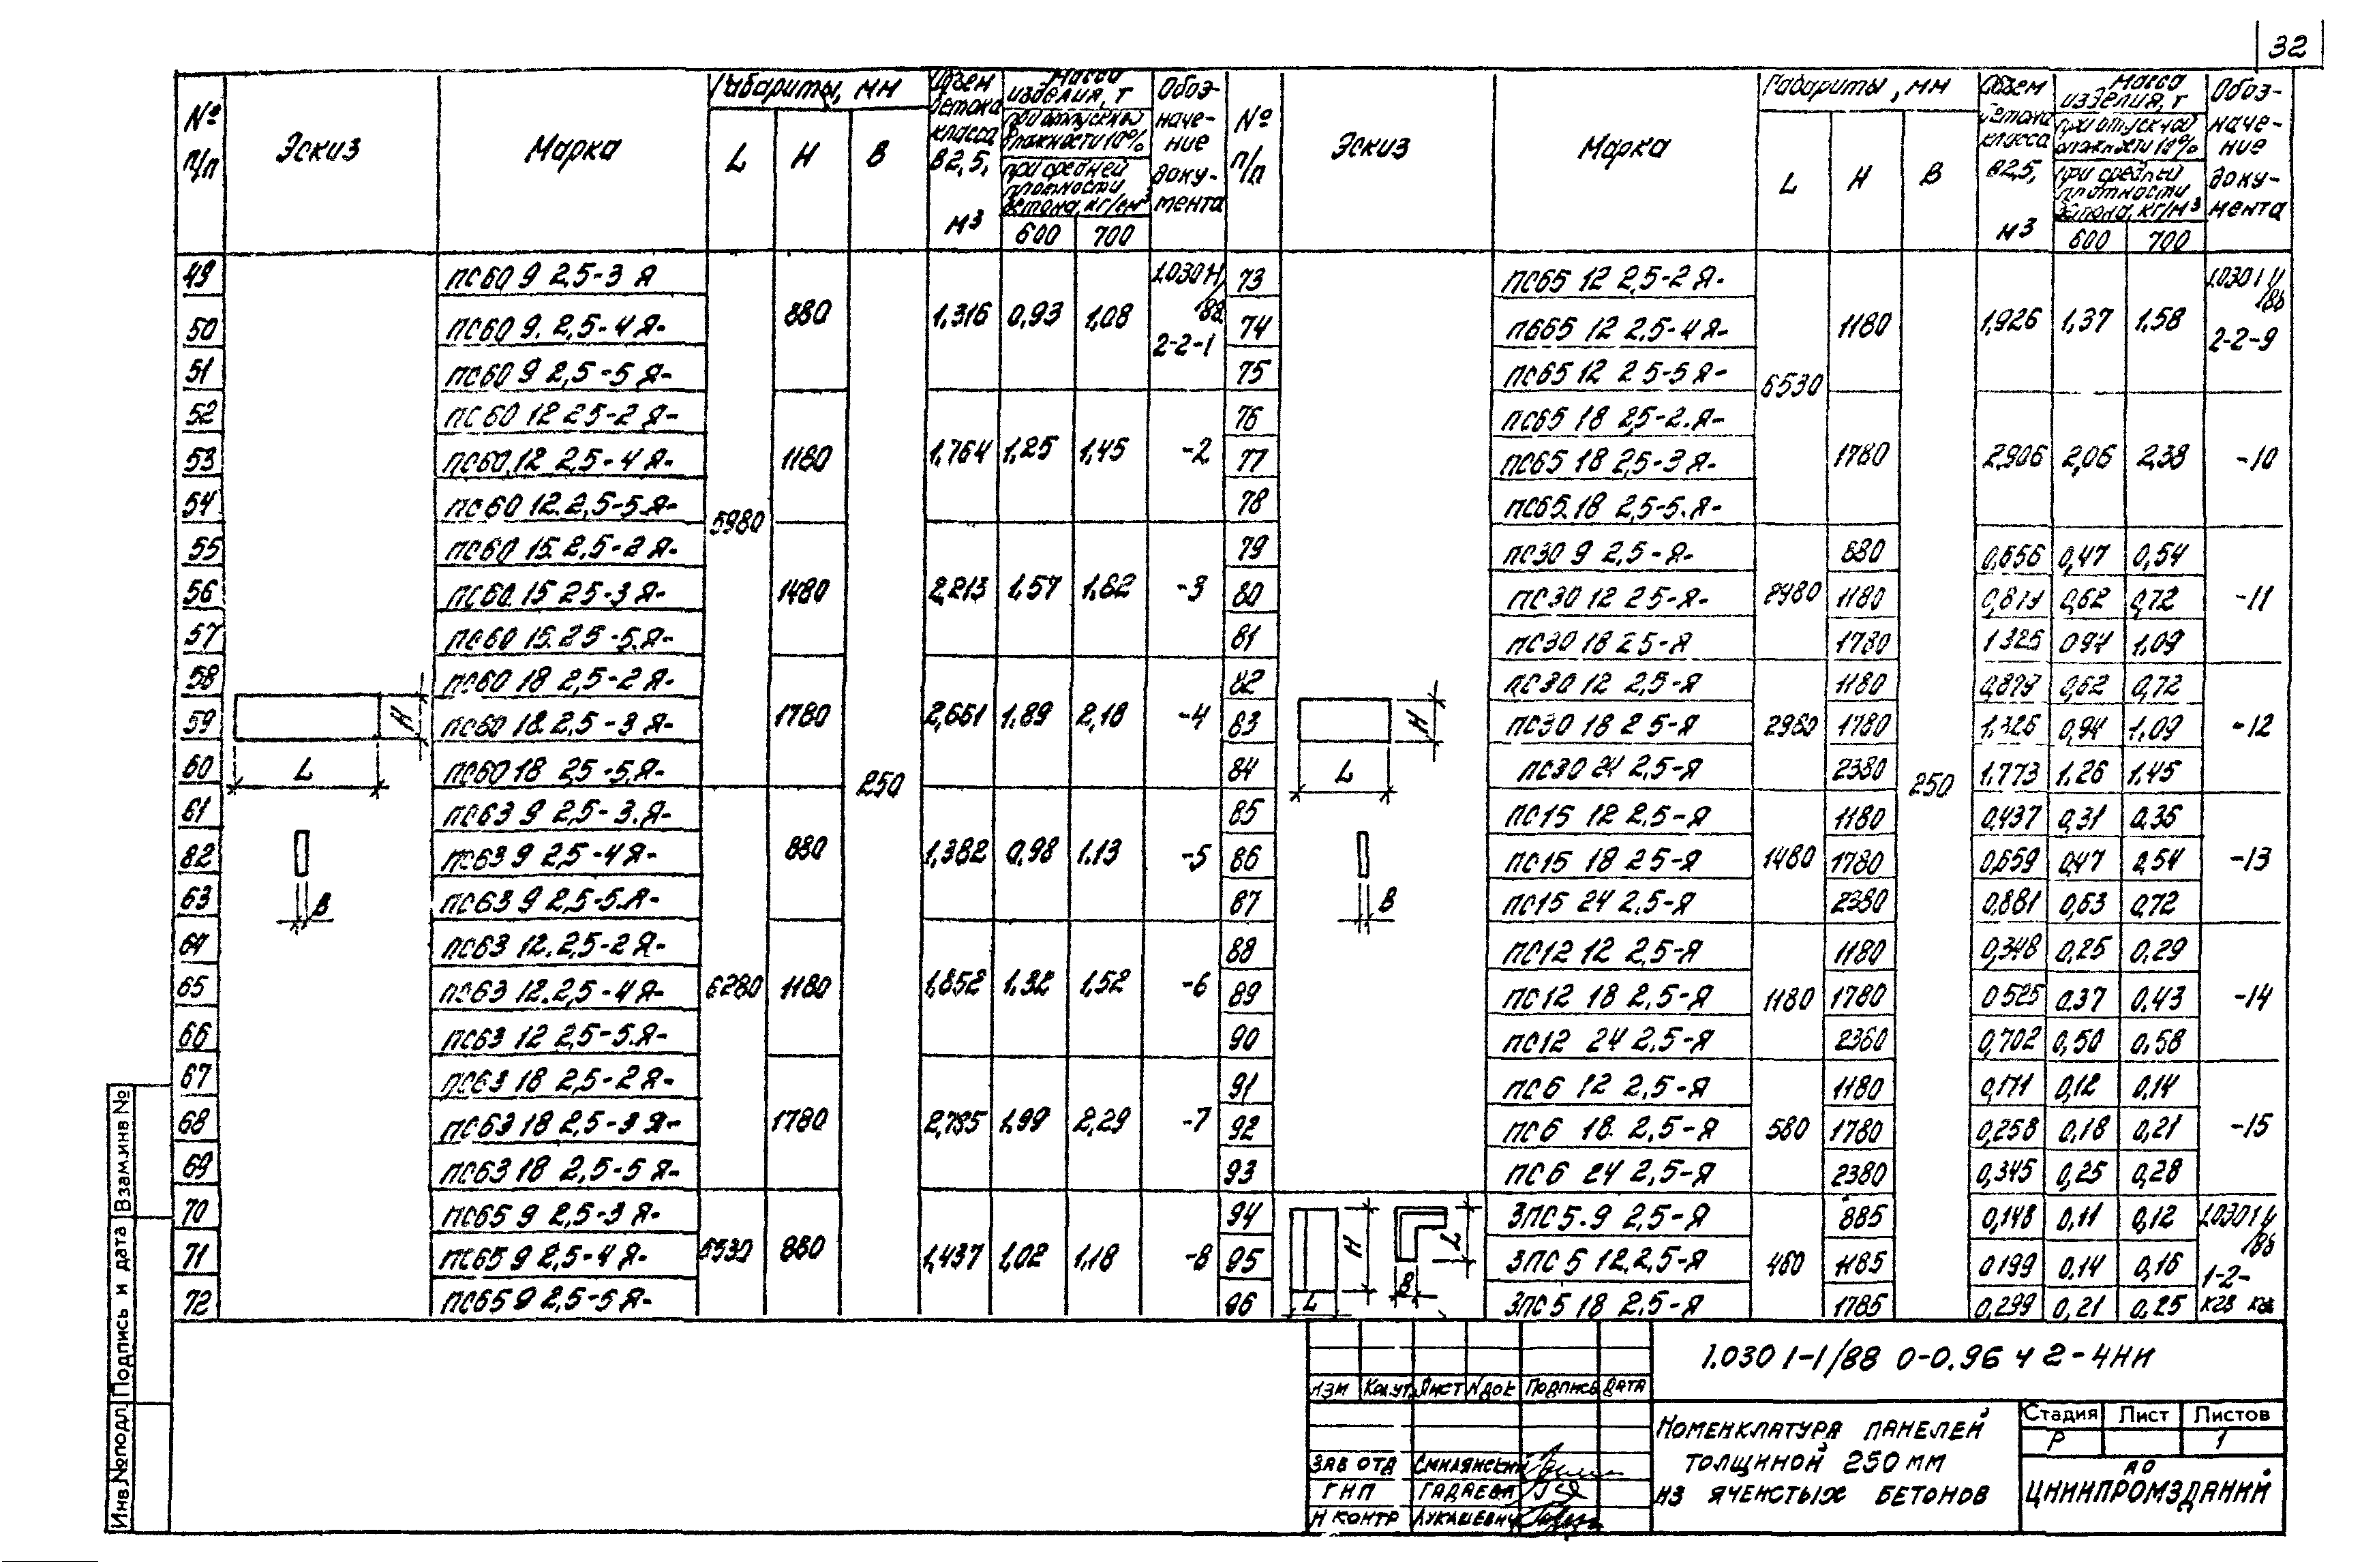 32
№ п/п Эскиз Марка Габариты, мм L H B Объем бетона класса В2,5, м3 Масса изделия, т при отпускной влажности 10% при средней плотности бетона, кг/см³ 600 700 Обоз-наче-ние доку-мента
49 ПС60 9 2,5-3 Я
50 ПС60 9. 2,5-4 Я- 880 1,316 0,93 1,08 1.030 /88 2-2-1
51 ПС60 9 2,5-5 Я-
52 ПС60 12 25-2 Я-
53 ПС60.12 2,5-4 Я- 1180 1,764 1,25 1,45 -2
54 ПС60 12.2,5-5.Я-
5980
55 ПС60 15.2,5-2 Я-
56 ПС60.15 25-3 Я- 1480 2,213 1,57 1,82 -3
57 ПС60 15.25-5.Я-
58 ПС60 18 2,5-2 Я-
59 ПС60 18.2,5-3 Я- 1780 2,661 1,89 2,18 -4
60 ПС60 18 25-5.Я-
H
L
B
250
61 ПС63 9 2,5-3.Я-
82 ПС63 9 2,5-4Я- 880 1,382 0,98 1.13 -5
63 ПС63 9 2,5-5.Я-
64 ПС63 12.2,5-2 Я-
65 ПС63 12.2,5-4 Я- 6280 1180 1,852 1,32 1,52 -6
66 ПС63 12 2,5-5.Я-
67 ПС63 18 2,5-2 Я-
68 ПС63 18 2,5-3 Я- 1780 2,795 1,99 2,29 -7
69 ПС63 18 2,5-5 Я-
70 ПС65 9 2,5-3 Я-
71 ПС65 9 2,5-4 Я- 6530 880 1,437 1,02 1,18 -8
72 ПС65 9 2,5-5 Я-
№ п/п Эскиз Марка Габариты, мм L H B Объем бетона класса В2,5, м3 Масса изделия, т при отпускной влажности 10% при средней плотности бетона, кг/м3 600 700 Обоз-наче-ние доку-мента
73 ПС65 12 2,5-2 Я-
74 П665 12 2,5-4 Я- 1180 1,926 1,37 1.58 2-2-9
75 ПС65 12 25-5 Я-
6530
76 ПС65 18 25-2.Я-
77 ПС65 18 25-3 Я- 1780 2,906 2,06 2,38 -10
78 ПС65.18 2,5-5.Я-
79 ПС30 9 2,5-Я- 880 0,656 0,47 0,54
80 ПС30 12 25-Я- 2980 1180 0,62 0,72 -11
81 ПС30 18 25-Я 1780 1325 094 1.09
82 ПС30 12 2,5-Я 1180 0,879 0,62 0,72
83 ПС30 18 25-Я 2980 1780 1.326 0,94 1.09 -12
84 ПС30 24 2,5-Я 2380 1.773 1,26 1.45
H
L
B
250
85 ПС15 12 2.5-Я 1180 0,437 0,31 0.35
86 ПС15 18 25-Я 1480 1780 0,659 0,47 0,54 -13
87 ПС15 24 2.5-Я 2380 0,881 0,63 0,72
88 ПС12 12 2,5-Я 1180 0,348 0,25 0.29
89 ПС12 18 2,5-Я 1180 1780 0525 0.37 0,43 -14
90 ПС12 24 2,5-Я 2360 0,702 0,50 0,58
91 ПС6 12 2,5-Я 1180 0,171 0,12 0,14
92 ПС6 18. 2,5-Я 580 1780 0,258 0,18 0,21 -15
93 ПС6 24 2,5-Я 2380 0,345 0,25 0,28
94 3ПС5.9 2,5-Я 885 0,148 0,11 0,12
95 3ПС5 12.2,5-Я 460 1185 0199 0.14 0,16 1-2-
96 3ПС5 18 2,5-Я 1785 0,299 0,21 0,25
H L B L
1.030 1-1/88 0-0.96 ч 2-4НИ
Изм Кол.ут. Лист N док Подпись Дата
Номенклатура панелей
толщиной 250 мм
из ячеистых бетонов
Стадия Лист Листов
Р 1
АО
ЦНИИПРОМЗДАНИЙ
Зав отд Смилянский
ГИП Гадаева
Н контр Лукашевич
Взам.инв №
Подпись и дата
Инв.№подл.